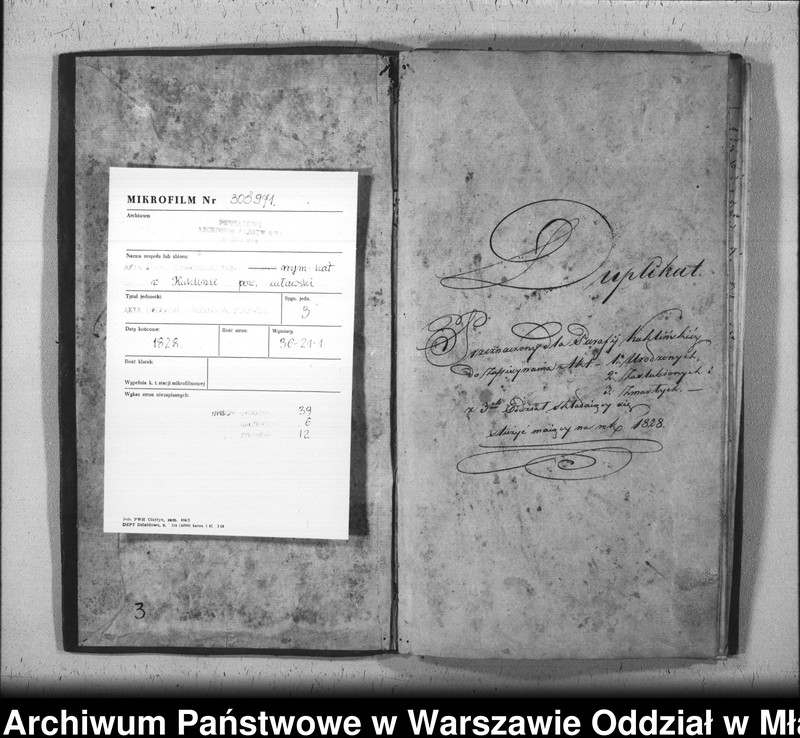 MIKROFILM Nr 303971.
Archiwum
Nazwa zespołu lub zbioru:
rzym. kat
w pow. mławski
Tytuł jednostki:
Sygn. jedn.
3
Daty końcowe:
1828
Ilość stron:
Wymiary
36-21-1
Ilość klatek:
Wypełnia k. t. stacji mikrofilmowej
Wykaz stron niezapisanych:
39
6
12
3
Duplikat.
Przeznaczony dla Parafij
do Akt 1. Urodzonych,
2. Zaślubionych i
3. Zmarłych. —
z 3ch składaiący się
służyć maiący na rok 1828.
Archiwum Państwowe w Warszawie Oddział w